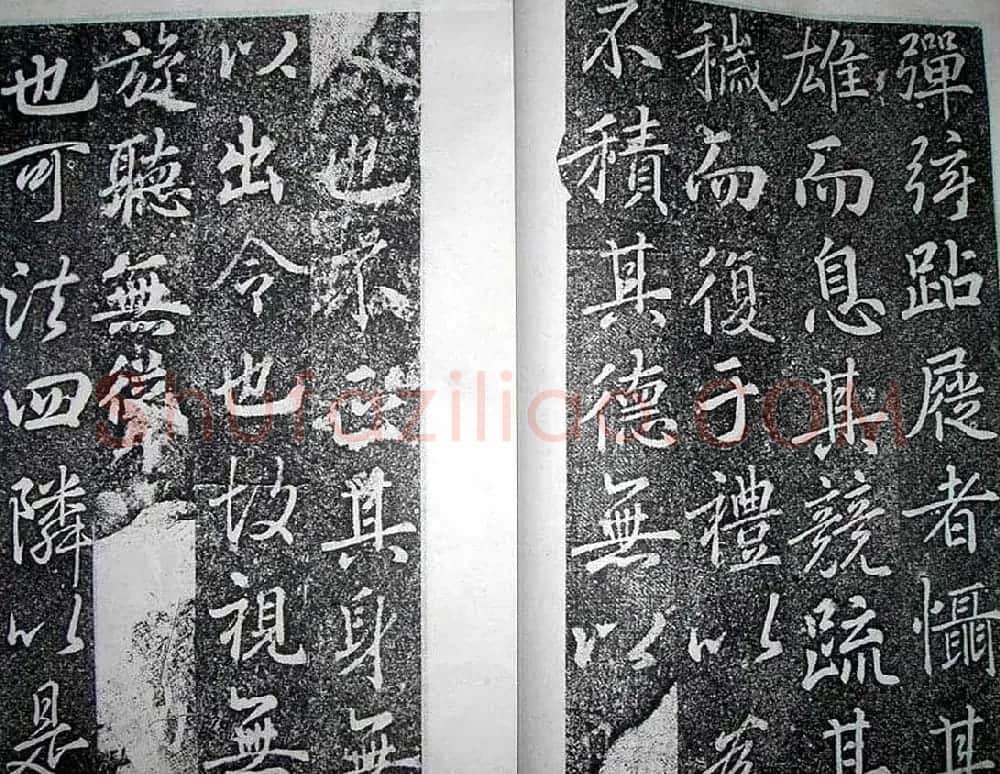 彈弦跕屣者懾其
雄而息其競疏其
穢而復于禮以為
不積其德無以
人也其身無
以出令也故視無
旋聽無聳
也可法四隣以是
Shufaziliao.COM